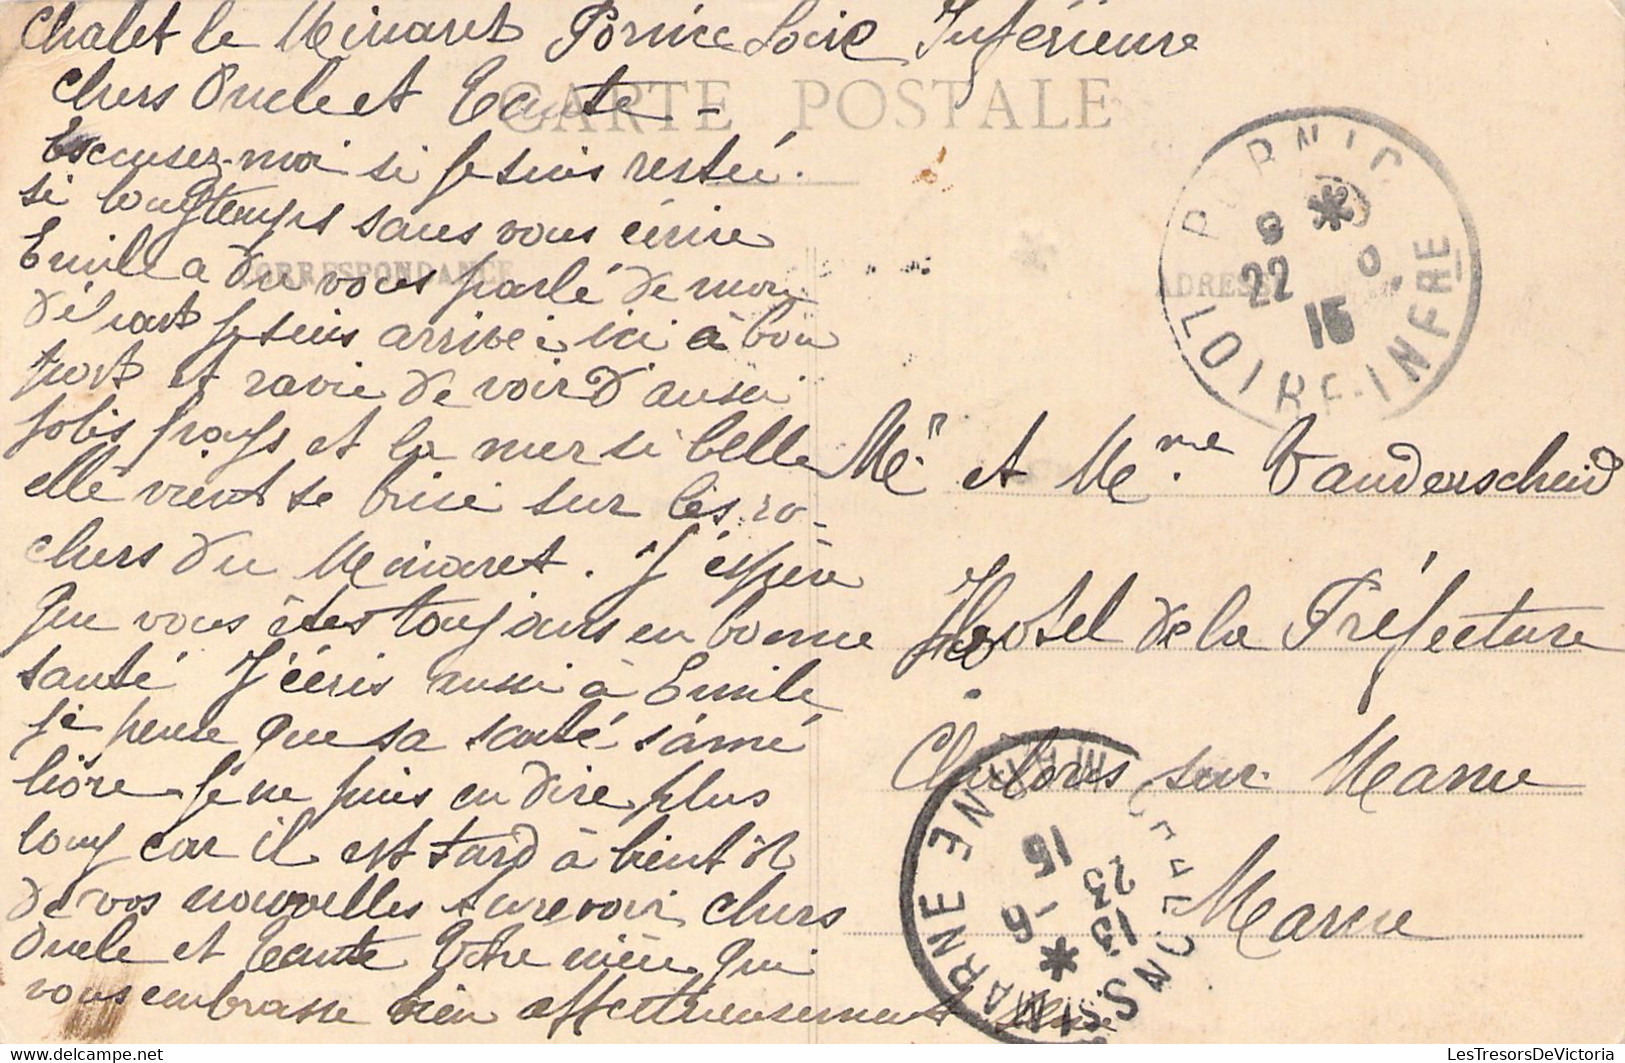 Chalet le Minaret Pornic Loire Inférieure
CARTE POSTALE
Chers Oncle et Tante -
Excusez-moi si je suis restée
si longtemps sans vous écrire
CORRESPONDANCE
Emile a du vous parlé de moi
je suis arrivée ici à bon
port et ravie de voir d'aussi
jolis pays et la mer si belle
elle vient se brisé sur les ro-
chers du Minaret. J'espère
que vous êtes toujours en bonne
santé J'écris aussi à Emile
je pense que sa santé s'amé
liore. Je ne puis en dire plus
long car il est tard à bientôt
de vos nouvelles au revoir chers
Oncle et Tante Votre nièce qui
vous embrasse bien affectueusement
ADRESSE
PORNIC
22
15
LOIRE-INFRE
Mr et Mme Vanderscheid
Hotel de la Préfecture
Chalons sur Marne
Marne
CHALONS S MARNE
MARNE
13
23 - 9
15
LesTresorsDeVictoria
https://www.delcampe.net